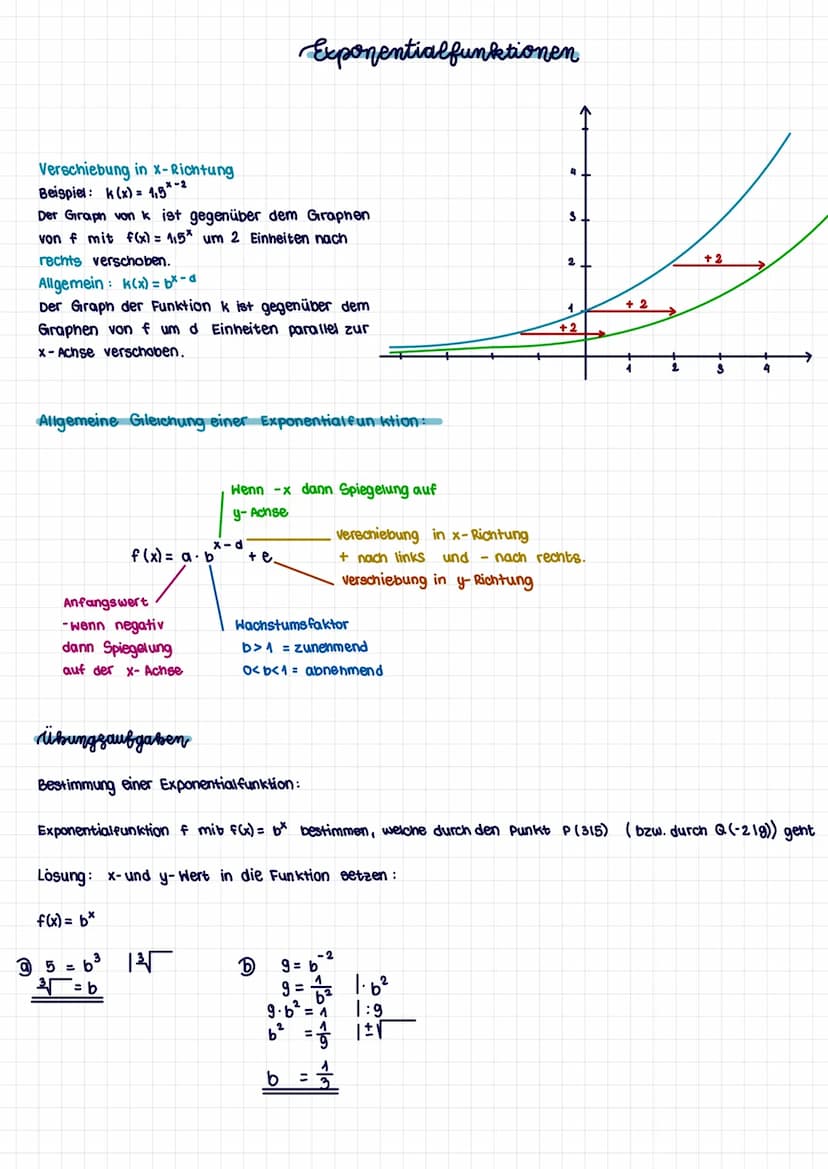 Exponentialfunktionen
Verschiebung in x-Richtung
Beispiel: k(x) = 1,5^x-2
Der Graph von k ist gegenüber dem Graphen
von f mit f(x) = 1,5^x um 2 Einheiten nach
rechts verschoben.
Allgemein: k(x) = b^x-d
Der Graph der Funktion k ist gegenüber dem
Graphen von f um d Einheiten parallel zur
x-Achse verschoben.
4
3
2
1
+2
+2
+2
1 2 3 4
Allgemeine Gleichung einer Exponentialfunktion:
Wenn -x dann Spiegelung auf
y-Achse
Verschiebung in x-Richtung
+ nach links und - nach rechts.
f(x) = a · b^x-d + e
Verschiebung in y-Richtung
Anfangswert
-wenn negativ
dann Spiegelung
auf der x-Achse
Wachstumsfaktor
b>1 = zunehmend
0<b<1 = abnehmend
Übungsaufgaben
Bestimmung einer Exponentialfunktion:
Exponentialfunktion f mit f(x) = b^x bestimmen, welche durch den Punkt P(3|5) (bzw. durch Q(-2|9)) geht
Lösung: x-und y-Wert in die Funktion setzen:
f(x) = b^x
a) 5 = b³ |³√
³√ = b
b) 9 = b^-2
9 = 1/b² |·b²
9·b² = 1 |:9
b² = 1/9 |±√
b = 1/3